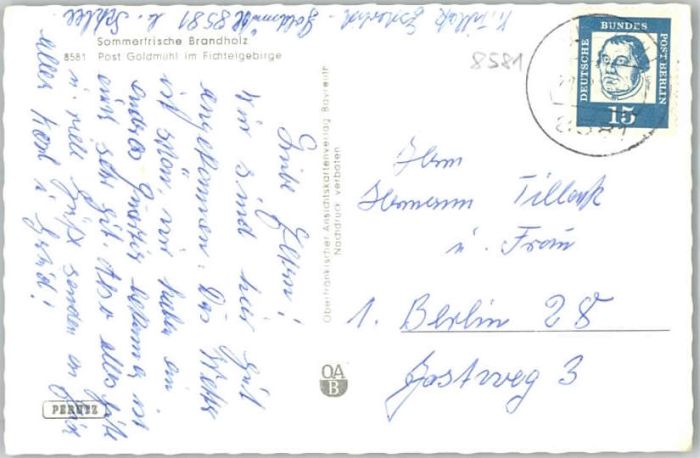 Sommerfrische Brandholz
8581 Post Goldmühl im Fichtelgebirge
8581
DEUTSCHE BUNDES POST BERLIN
15
8581
Liebe Eltern!
Wir sind hier gut
angekommen. Das Wetter
ist schön, wir haben ein
anderes Quartier bekommen, ist
auch sehr gut. Also alles Gute
u. viele Grüße senden an Euch
alle
Goldmühl 8581
Oberfränkischer Ansichtskartenverlag Bayreuth
Nachdruck verboten
OA
B
PERUTZ
Herrn
Hermann Tillack
u. Frau
1. Berlin 28
Gastweg 3